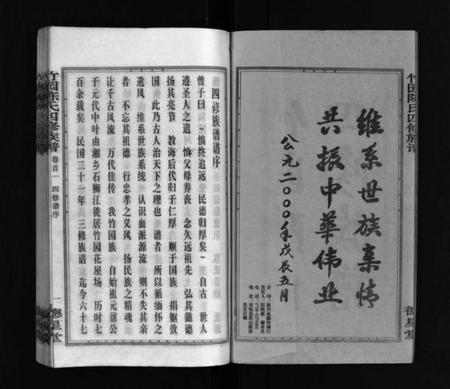 竹园陈氏四修族谱
维系世族亲情
共振中华伟业
公元二〇〇〇年戊辰五月
德星堂
竹园陈氏四修族谱 卷首一 四修谱序
一 德星堂
四修族谱谱序
曾子曰 慎终追远 民德归厚矣 自古 世人
遵圣人之道 恤父母养丧 念久远祖先 弘其懿德
扬其亮节 教诲后代归于仁厚 顺于国族 捐躯效
国 此乃古人治天下之理也 谱者 所以循缅怀之
遗风 维系世族系统 认识血派源流 则不失其亲
者 不忘其祖德 行忠孝之义风 扬民族之精魂
让千古风流 万代佳传 我竹园族 自始祖元原公
于元代中叶由湘乡石狮江徙居竹园花屋场 历时七
百余载矣 民国三十一年 三修族谱 迄今六十七